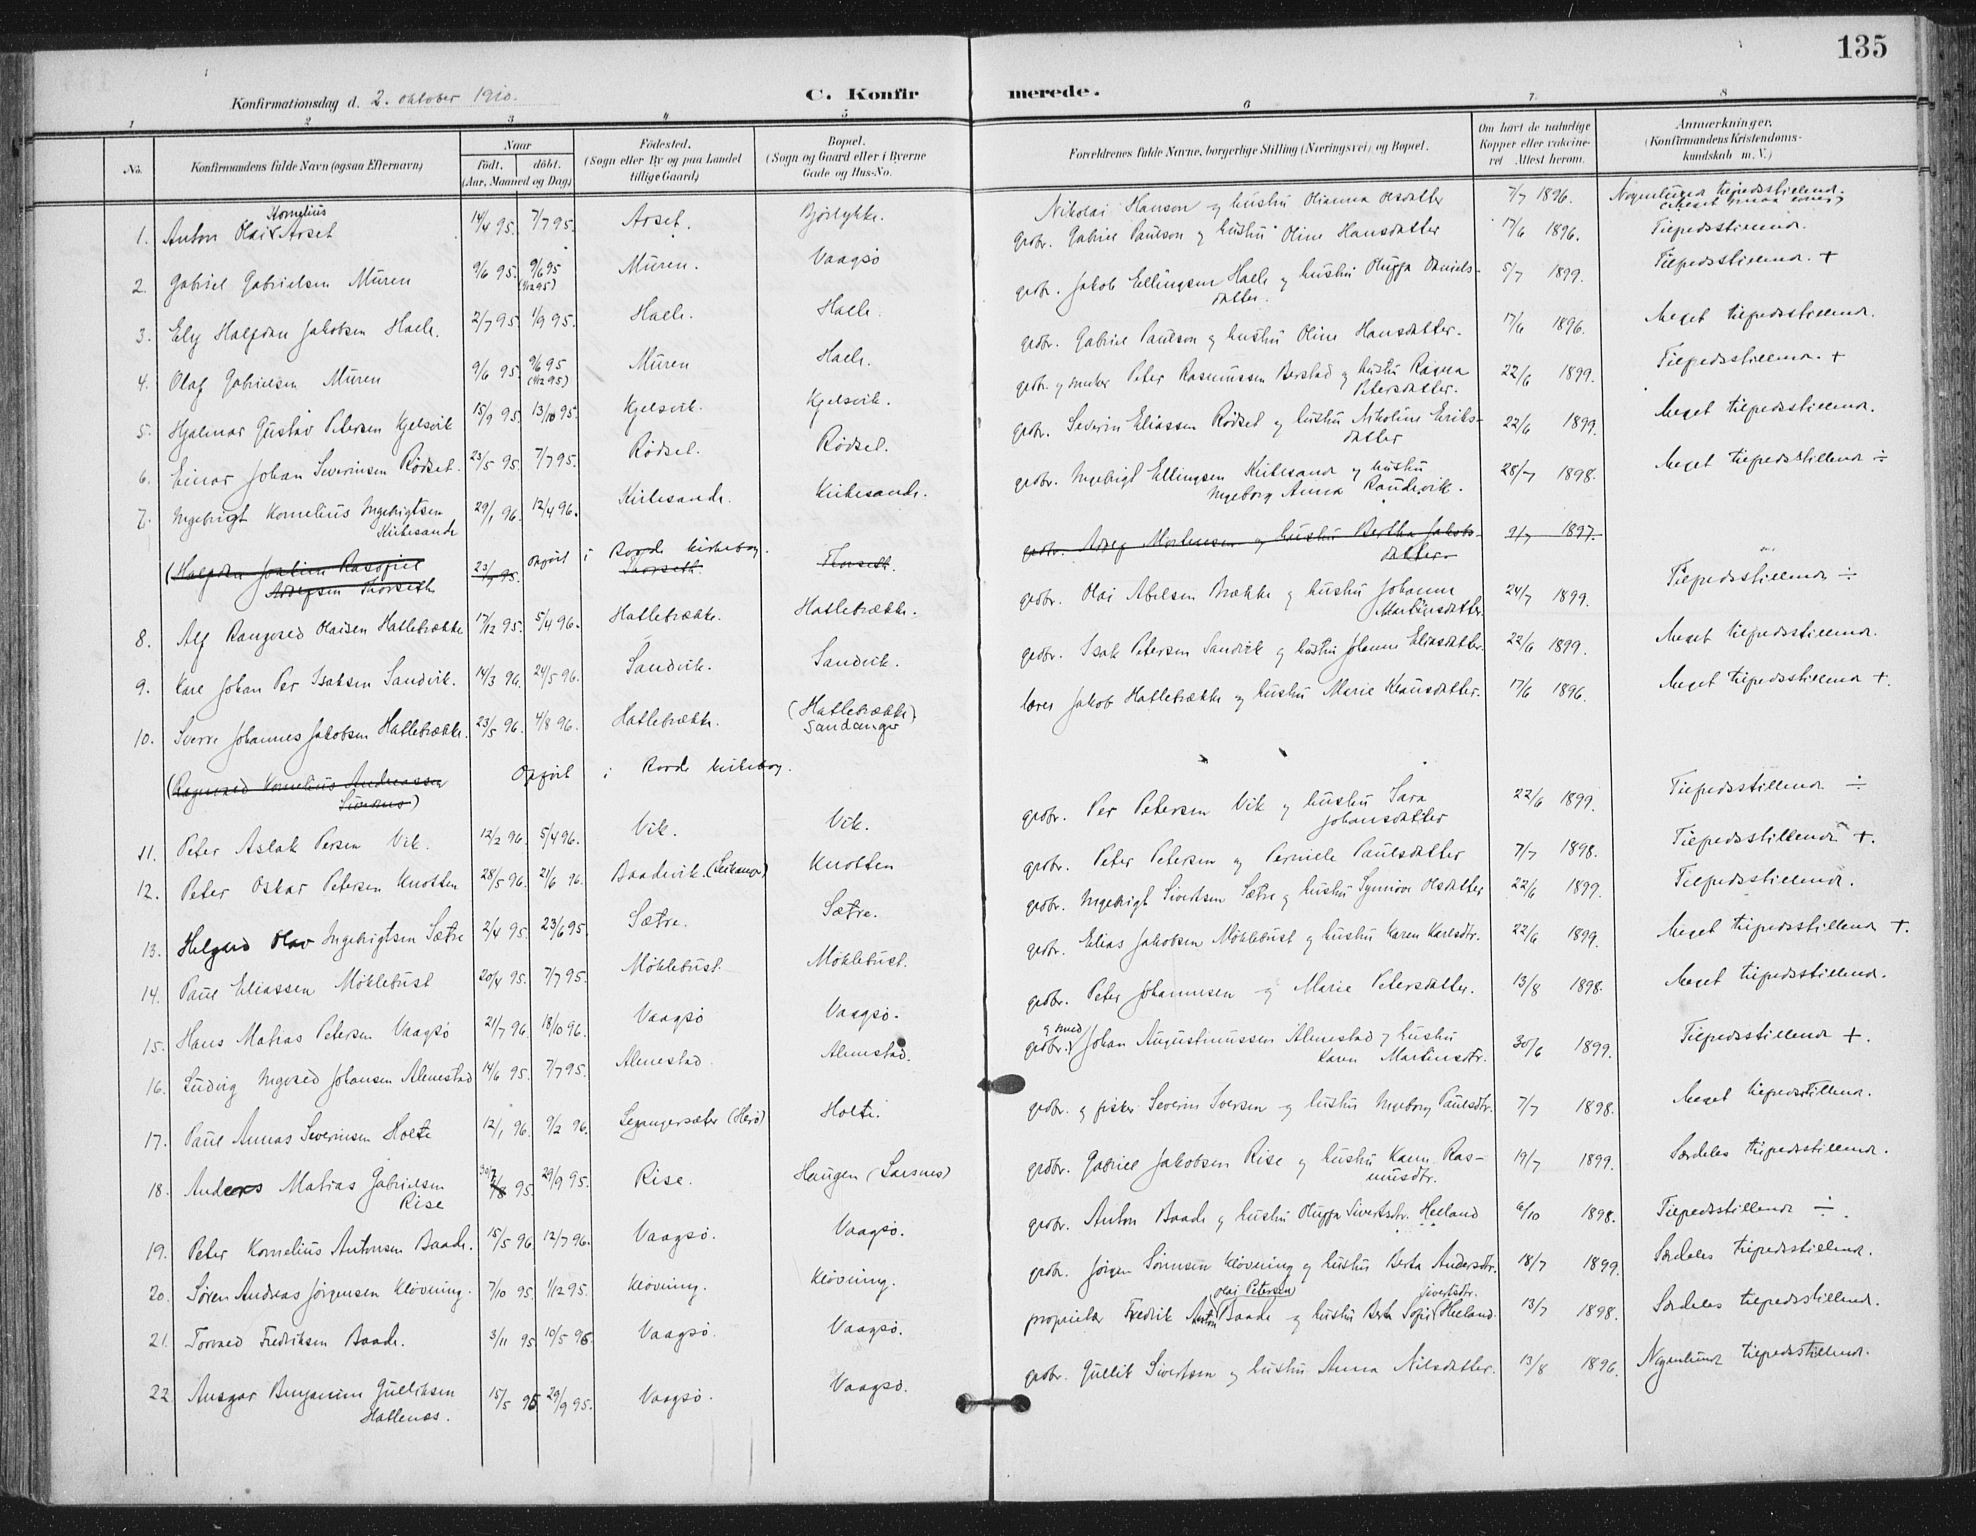 135
Konfirmationsdag d. 2. oktober 1910.
C. Konfirmerede.
1 2 3 4 5 6 7 8
No.
Konfirmandens fulde Navn (ogsaa Efternavn)
Naar
født. døbt.
(Aar, Maaned og Dag)
Födested.
(Sogn eller By og paa Landet
tillige Gaard)
Bopæl.
(Sogn og Gaard eller i Byerne
Gade og Hus-No.
Forældrenes fulde Navne, borgerlige Stilling (Næringsvei) og Bopæl.
Om havt de naturlige
Kopper eller vakcine-
ret Attest herom.
Anmærkninger.
(Konfirmandens Kristendoms-
kundskab m. V.)
Kornelius
1. Anton Olai Arset 14/4 95. 7/7 95. Arset. Bjørlykke. Nikolai Hanson og hustru Olianna Olsdatter 7/7 1896. Nogenlunde tilfredsstillende.
2. Gabriel Gabrielsen Muren 9/6 95. 9/6 95 (1/12 95) Muren. Vaagsø gbr. Gabriel Paulson og hustru Oline Hansdatter 17/6 1896. Tilfredsstillende.
3. Elg Halfdan Jakobsen Hach. 2/7 95. 1/9 95. Hach. Hach. gbr. Jakob Ellingsen Hach og hustru Olugga Daniels-
datter. 5/7 1899. Tilfredsstillende. +
4. Olaf Gabrielsen Muren 9/6 95. 9/6 95 (1/12 95) Muren Hach. gbr. Gabriel Paulson og hustru Oline Hansdatter. 17/6 1896. Meget tilfredsstillende.
5. Hjalmar Gustav Petersen Kjelsvik 15/9 95. 13/10 95. Kjelsvik. Kjelsvik. gbr. og smed Peter Rasmussen Berstad og hustru Ragna
Petersdatter. 22/6 1899. Tilfredsstillende. +
6. Einar Johan Severinsen Rødset. 23/5 95. 7/7 95. Rødset. Rødset. gbr. Severin Eliassen Rødset og hustru Nikoline Eriks-
datter 22/6 1899. Meget tilfredsstillende.
7. Ingebrigt Kornelius Ingebrigtsen
Kirkesande 29/1 96. 12/4 96. Kirkesande. Kirkesande. gbr. Ingebrigt Ellingsen Kirkesand og hustru
Ingeborg Anna Raudevik. 28/7 1898. Meget tilfredsstillende ÷
(Halfdan Joakim Rasofiel
Adolfsen Thorseth 23/7 95. opført i Rovde kirkebog.
Thorseth. Thorseth. gbr. Adolf Mortensen og hustru Bertha Jakobs-
datter. 9/7 1897.
8. Alf Rangvald Olaisen Hatlebrække 17/12 95. 5/4 96. Hatlebrække. Hatlebrække. gbr. Olai Abelsen Brække og hustru Johanne
Martinsdatter. 24/7 1899. Tilfredsstillende ÷
9. Kare Johan Per Isaksen Sandvik. 14/3 96. 24/5 96. Sandvik. Sandvik. gbr. Isak Petersen Sandvik og hustru Johanne Eliasdatter. 22/6 1899. Meget tilfredsstillende.
10. Sverre Johannes Jakobsen Hatlebrække. 23/5 96. 4/8 96. Hatlebrække. (Hatlebrække)
Sandanger lærer Jakob Hatlebrække og hustru Marie Klausdatter. 17/6 1896. Meget tilfredsstillende +.
(Ragnvald Kornelius Andreassen
) Opført i Rovde kirkebog.
11. Peter Aslak Persen Vik. 12/2 96. 5/4 96. Vik. Vik. gbr. Per Petersen Vik og hustru Sara
Johansdatter 22/6 1899. Tilfredsstillende ÷
12. Peter Oskar Petersen Knotten 28/5 96. 21/6 96. Baadsvik. (Leikanger) Knotten gbr. Peter Petersen og Pernele Paulsdatter 7/7 1898. Tilfredsstillende +.
13. Helgred Olav Ingebrigtsen Sætre 2/4 95. 23/6 95. Sætre. Sætre. gbr. Ingebrigt Sivertsen Sætre og hustru Synnøve Olsdatter 22/6 1899. Tilfredsstillende.
14. Paul Eliassen Möklebust 20/4 95. 7/7 95. Möklebust. Möklebust. gbr. Elias Jakobsen Möklebust og hustru Karen Karlsdtr. 22/6 1899. Meget tilfredsstillende +.
15. Hans Matias Petersen Vaagsø 21/7 96. 18/10 96. Vaagsø Vaagsø. gbr. Peter Johannesen og Marie Petersdatter. 13/8 1898. Meget tilfredsstillende.
16. Ludvig Ingvald Johansen Almestad 14/6 95. 7/7 95. Almestad. Almestad. gbr. og smed Johan Augustinussen Almestad og hustru
Karen Martinsdtr. 30/6 1899. Tilfredsstillende +.
17. Paul Annas Severinsen Holte 12/1 96. 9/2 96. Segangersæter (Herø) Holte. gbr. og fisker Severin Iversen og hustru Ingeborg Paulsdtr. 7/7 1898. Meget tilfredsstillende.
18. Anders Matias Gabrielsen
Rise 30/7 95. 29/9 95. Rise. Haugen (Larsnes) gbr. Gabriel Jakobsen Rise og hustru Karen Ras-
musdtr. 19/7 1899. Særdeles tilfredsstillende.
19. Peter Kornelius Antonsen Baade. 15/5 96. 12/7 96. Vaagsø. Vaagsø. gbr. Anton Baade og hustru Olugga Sivertsdtr. Heeland 6/10 1898. Tilfredsstillende ÷.
20. Søren Andreas Jörgensen Klövning. 7/10 95. 1/12 95. Klövning. Klövning. gbr. Jörgen Sörensen Klövning og hustru Berta Andersdtr. 18/7 1899. Særdeles tilfredsstillende.
21. Torvald Fredriksen Baade. 3/11 95. 10/5 96. Vaagsø. Vaagsø. proprietær Fredrik Anton (Olai Petersen) Baade og hustru Berta Sofie (sivertsdtr. Heeland. 13/7 1898. Særdeles tilfredsstillende.
22 Ansgar Benjamin Gulliksen
Hallenæs. 15/5 95. 29/9 95. Vaagsø. Vaagsø. gbr. Gullik Sivertsen og hustru Anna Nilsdatter. 13/8 1896. Nogenlunde tilfredsstillende.